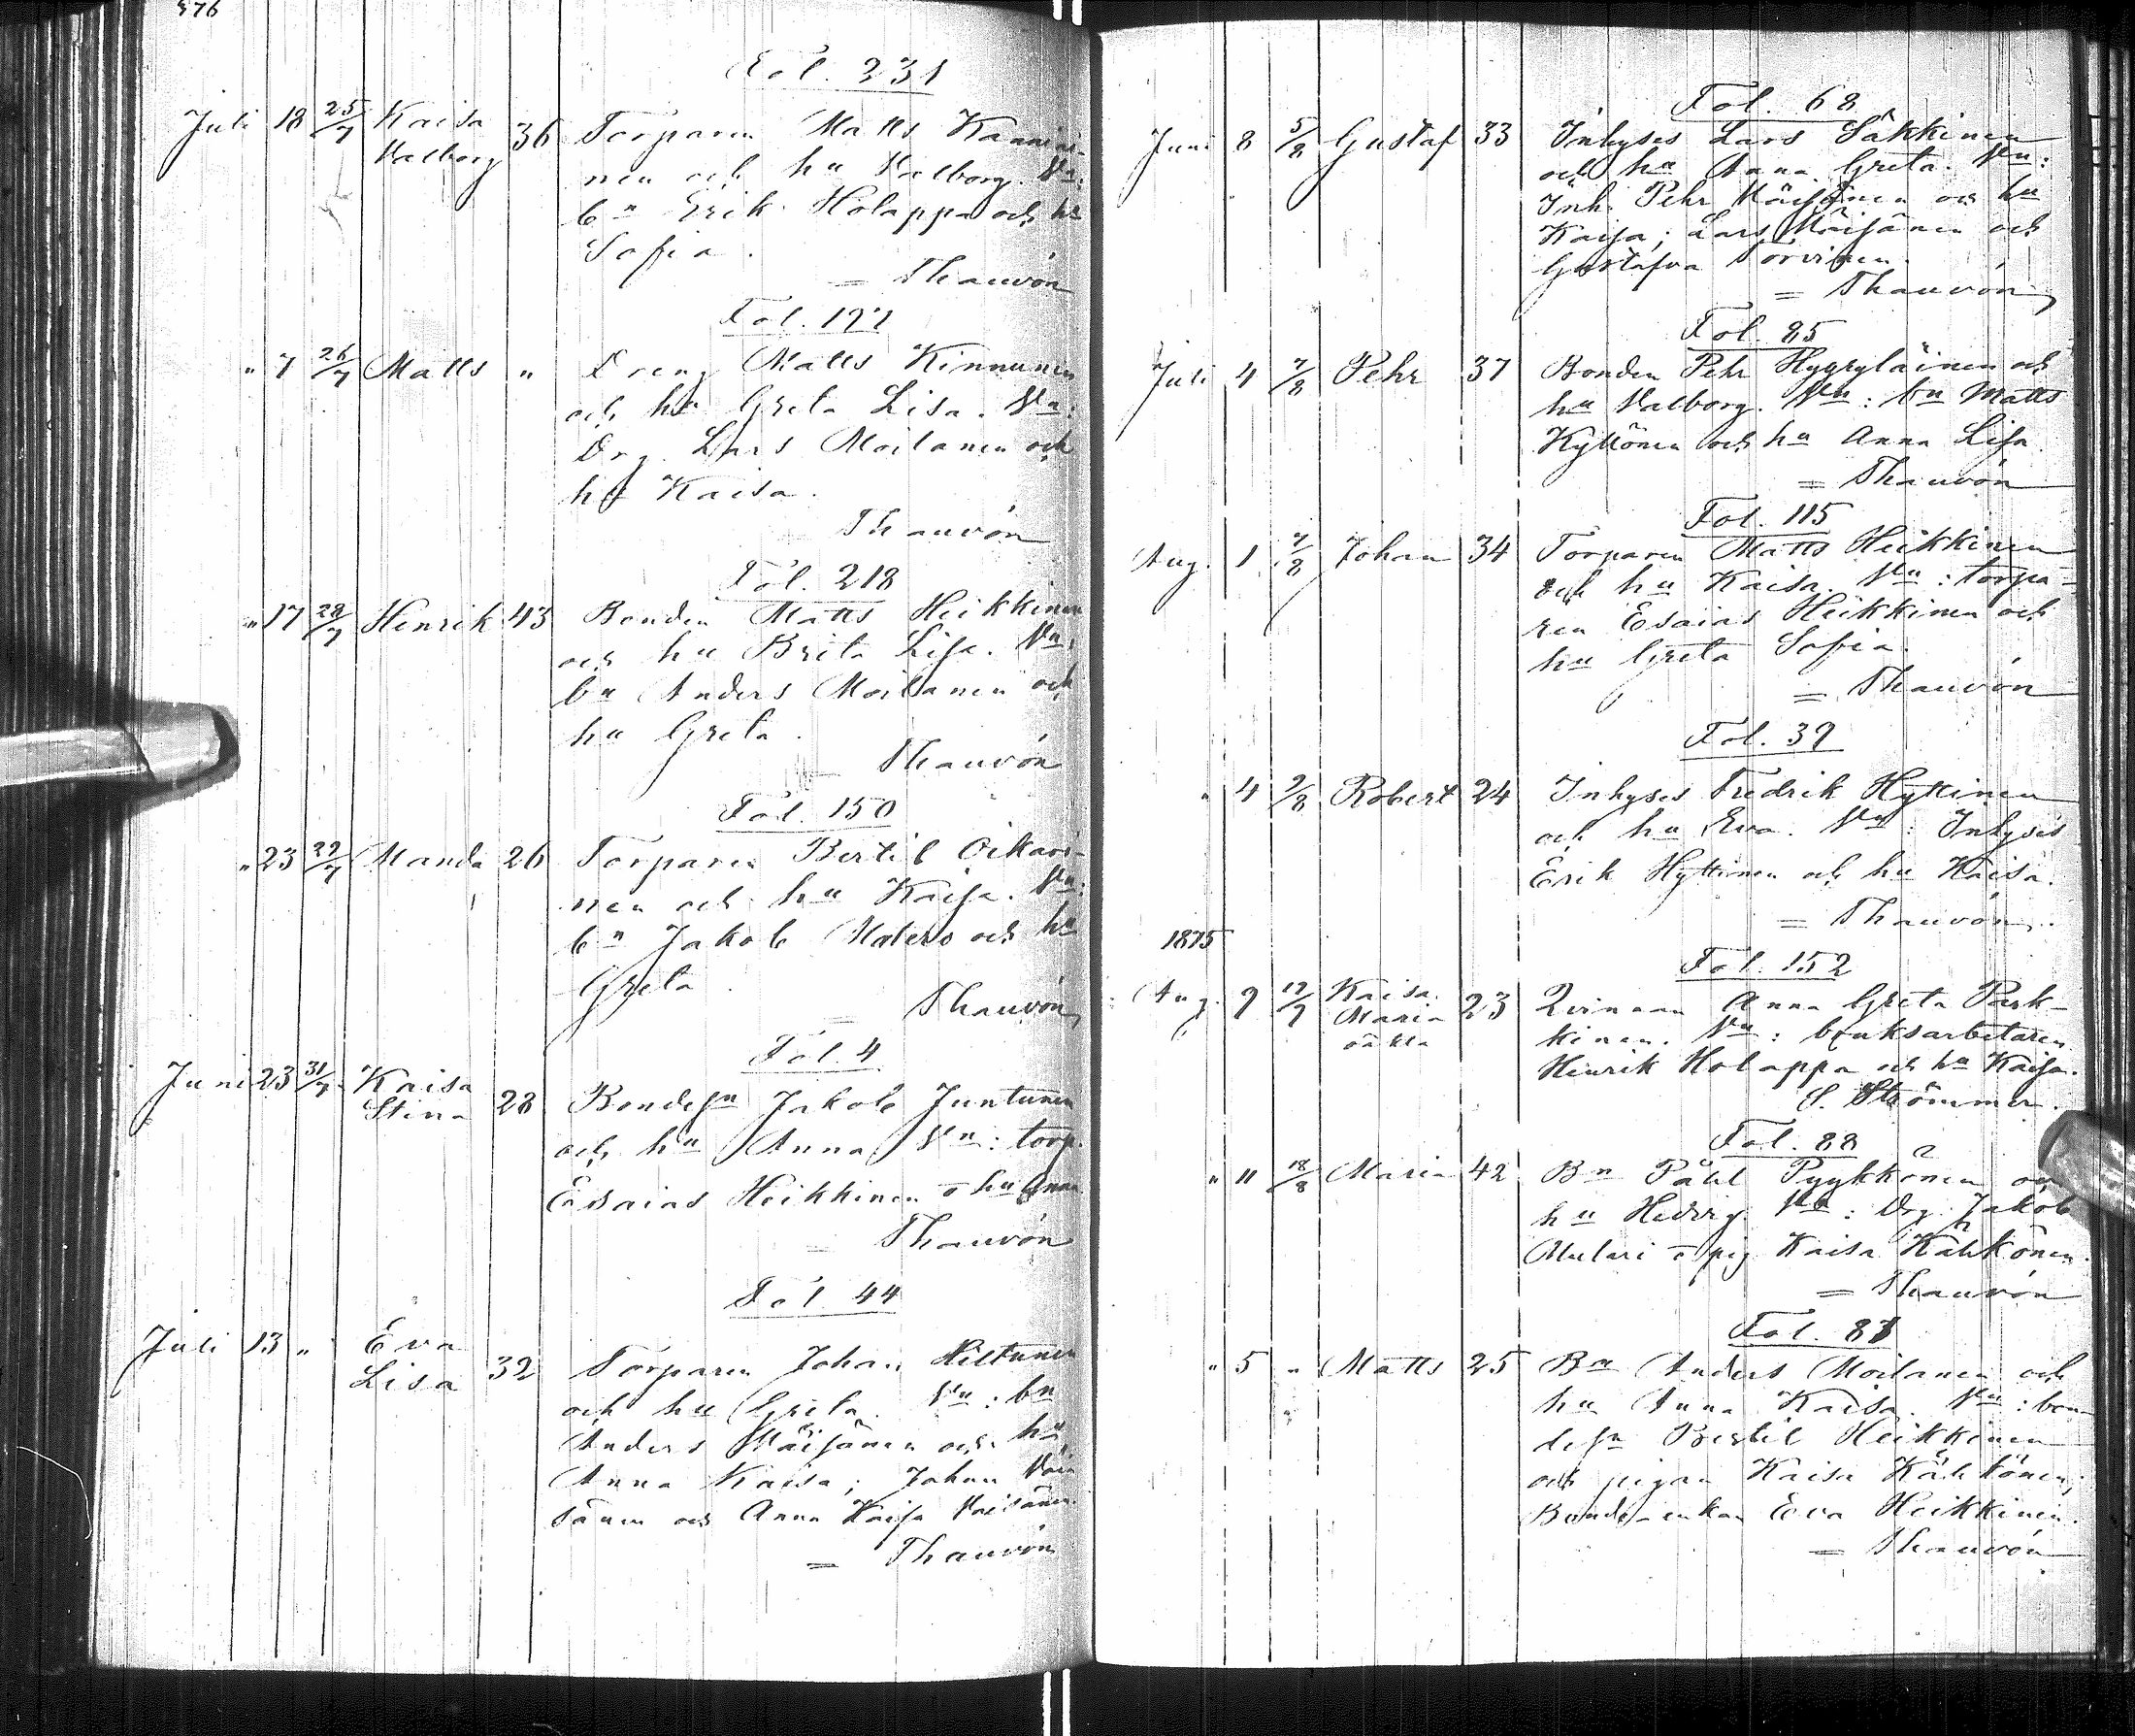 576
Fol. 231
Juli 18 25/7 Kaisa 36 Torparen Matts Kanniai-
Valborg nen och hu Valborg. Vn:
bn Erik Holappa och hu
Sofia.
= Thauvón
Fol. 177
" 7 26/7 Matts " Dreng Matts Kinnunen
och hu Greta Lisa. Vn:
Drg. Lars Moilanen och
hu Kaisa.
Thauvón
Fol. 218
" 17 28/7 Henrik 43 Bonden Matts Heikkinen
och hu Brita Lisa. Vn:
bn Anders Moilanen och
hu Greta.
= Thauvón
Fol. 150
" 23 29/7 Manda 26 Torparen Bertil Oikari-
nen och hu Kaisa. Vn:
bn Jakob och hu
Greta.
= Thauvón
Fol. 4
Juni 23 31/7 Kaisa 28 Bondesn Jakob Juntunen
Stina och hu Anna Vn: torp.
Esaias Heikkinen o hu Anna
= Thauvón
Fol. 44
Juli 13 " Eva 32 Torparen Johan Hiltunen
Lisa och hu Greta. Vn: bn
Anders Väisänen och hu
Anna Kaisa; Johan Väi
sänen och Anna Kaisa Väisänen.
= Thauvón
Fol. 68
Juni 8 5/8 Gustaf 33 Inhyses Lars Säkkinen
och hu Anna Greta. Vn:
Inh. Pehr Väisänen och hu
Kaisa; Lars Väisänen och
Gustafva Torvinen.
= Thauvón
Fol. 85
Juli 4 7/8 Pehr 37 Bonden Pehr Hyyryläinen och
hu Valborg. Vn: bn Matts
Kyllönen och hu Anna Lisa
= Thauvón
Fol. 115
Aug. 1 7/8 Johan 34 Torparen Matts Heikkinen
och hu Kaisa. Vn: torpa-
ren Esaias Heikkinen och
hu Greta Sofia.
= Thauvón
Fol. 39
" 4 /8 Robert 24 Inhyses Fredrik Hyttinen
och hu Eva. Vn: Inhyses
Erik Hyttinen och hu Kaisa.
= Thauvón.
1875
Fol. 152
Aug. 9 Kaisa 23 Qvinnan Anna Greta Park-
Maria kinen. Vn: bruksarbetaren
oäkta Henrik Holappa och hu Kaisa.
S. Strömmer.
Fol. 88
" 11 18/8 Maria 42 Bn Påhl Pyykkönen och
hu Hedvig. Vn: Drg. Jakob
Mulari o pig Kaisa Kähkönen.
= Thauvón
Fol. 83
" 5 " Matts 25 Bn Anders Moilanen och
hu Anna Kaisa. Vn: bon-
desn Bertil Heikkinen
och pigan Kaisa Kähkönen;
Bonde-enkan Eva Heikkinen.
= Thauvón